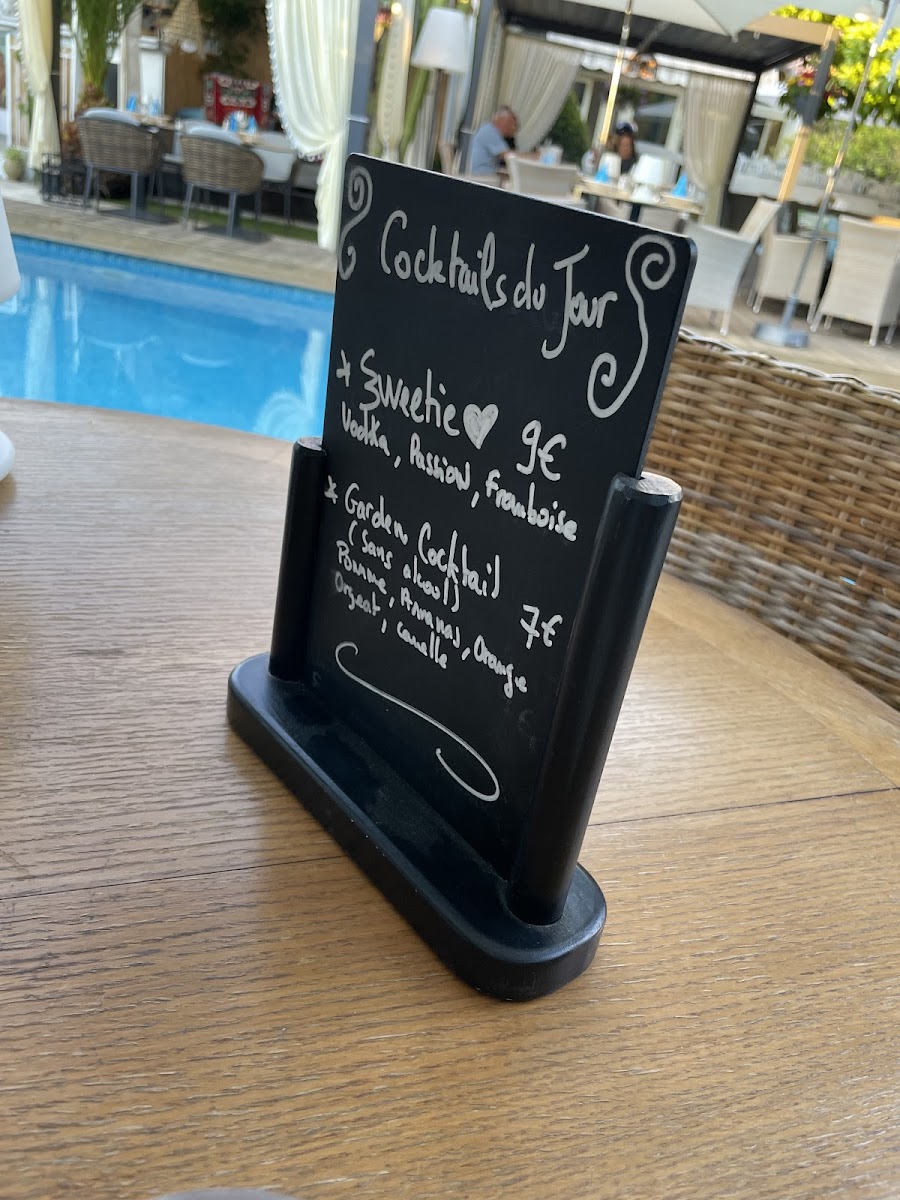 Cocktails du Jour
* Sweetie ♥ 9€
Vodka, Passion, Framboise
* Garden Cocktail
(Sans alcool) 7€
Pomme, Ananas, Orange
Orgeat, canelle